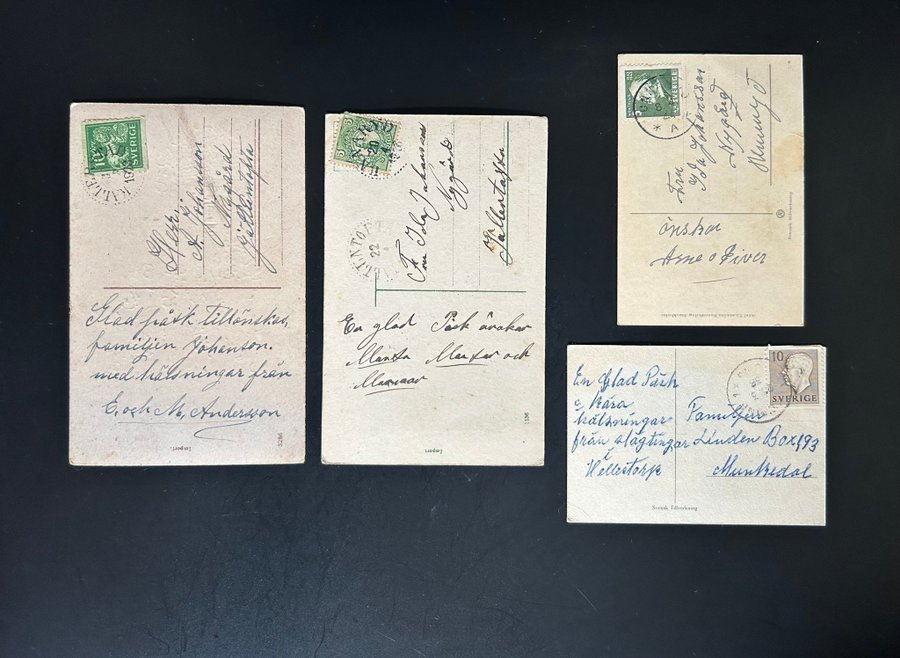 10
SVERIGE
Herr.
A. Johansson
Nygård
Glad påsk tillönskas,
familjen Johanson.
med hälsningar från
E. och M. Andersson
Import.
Fru Ida Johansson
Nygård
En glad Påsk önskar
Märta Margar och
Import
1336
SVERIGE
Fru
Ida Johansson
Nygård
önskar
Arne o Siver
Svensk tillverkning
En Glad Påsk
o kära
hälsningar
från släktingar
i Hellestorp
Familjen
Linden Box 193
Munkedal
10
SVERIGE
Svensk Tillverkning